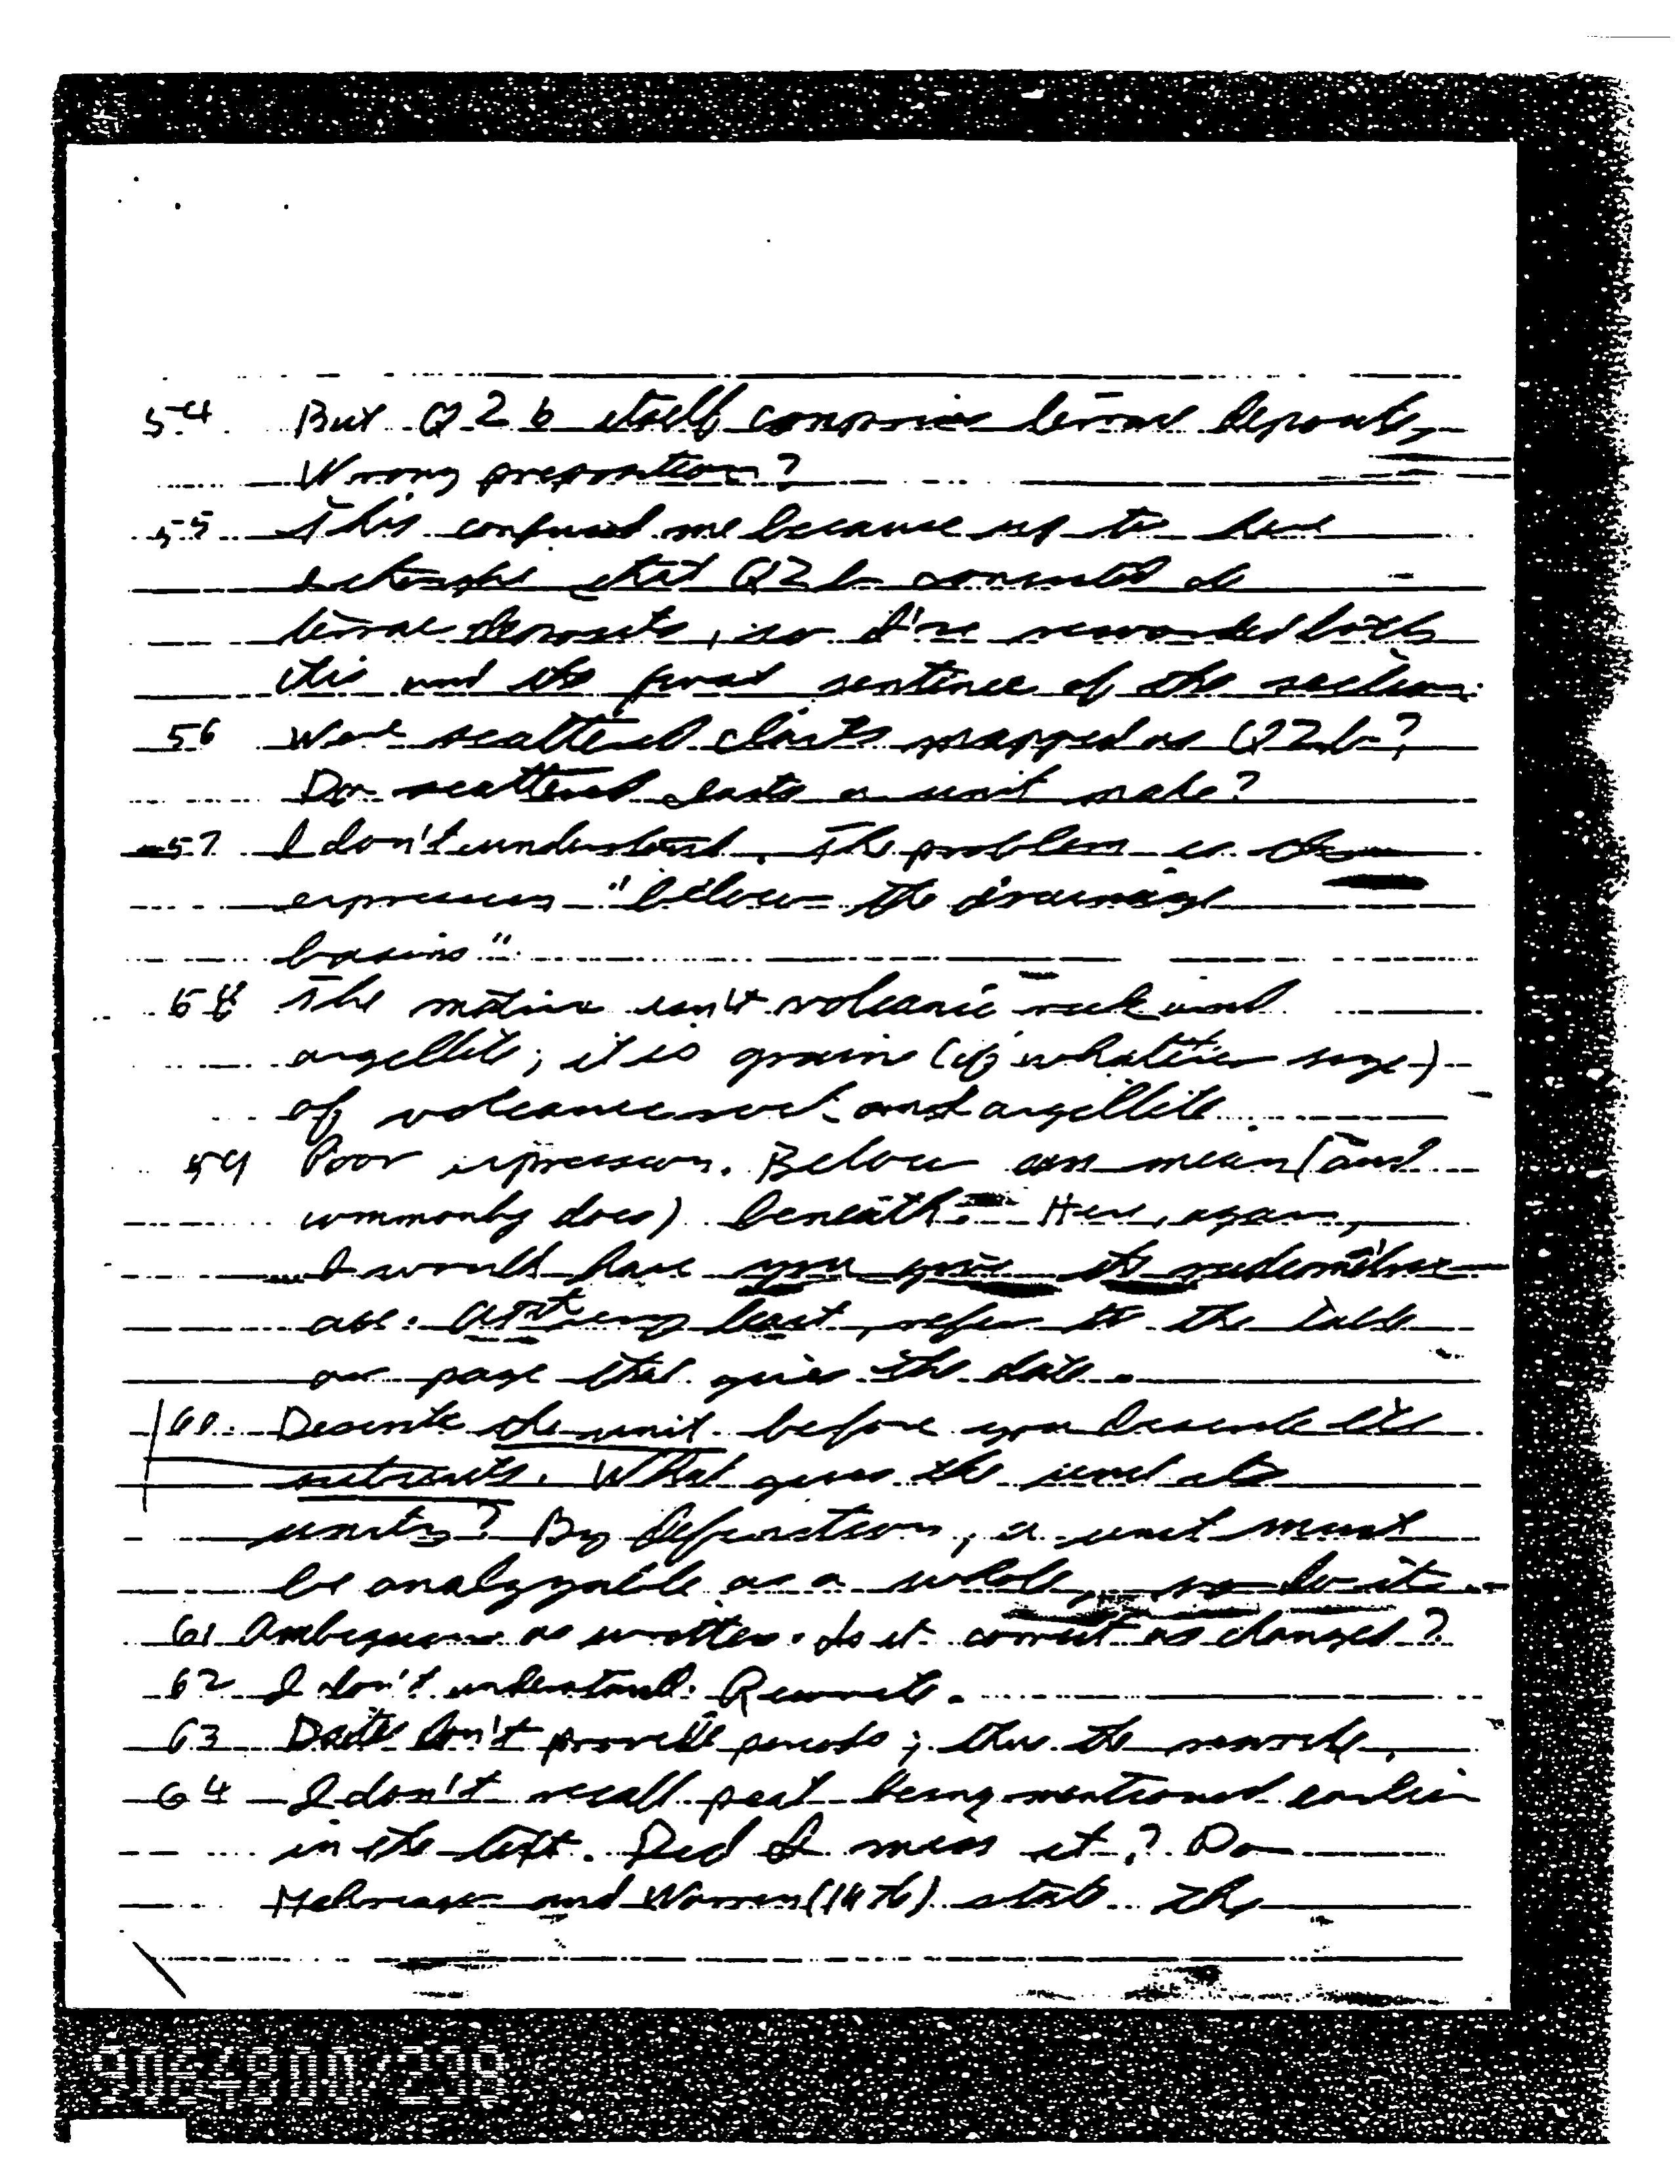 54 But Q2b itself comprises terrace deposits,
Wrong preposition?
55 This confused me because up to here
I thought that Q2b consisted of
terrace deposits, so I've reworded both
this and the first sentence of the section.
56 Were scattered clasts mapped as Q2b?
Do scattered clasts a unit make?
57 I don't understand. The problem is the
expression "below the drainage
basins"
58 The matrix isn't volcanic rock and
argillite; it is grains (of whatever size)
of volcanic rock and argillite
59 Poor expression. Below can mean (and
commonly does) beneath. Here, again,
I would have you give its
age. At very least, refer to the table
or page that gives the date.
60. Describe the unit before you describe its
subunits. What gives the unit its
unity? By definition, a unit must
be analyzable as a whole, so do it.
61 Ambiguous as written. Is it correct as changed?
62 I don't understand. Rewrite.
63 Dates don't provide periods; thus the rewrite.
64 I don't recall peat being mentioned earlier
in the text. Did I miss it? Do
and Warren (1976) state the